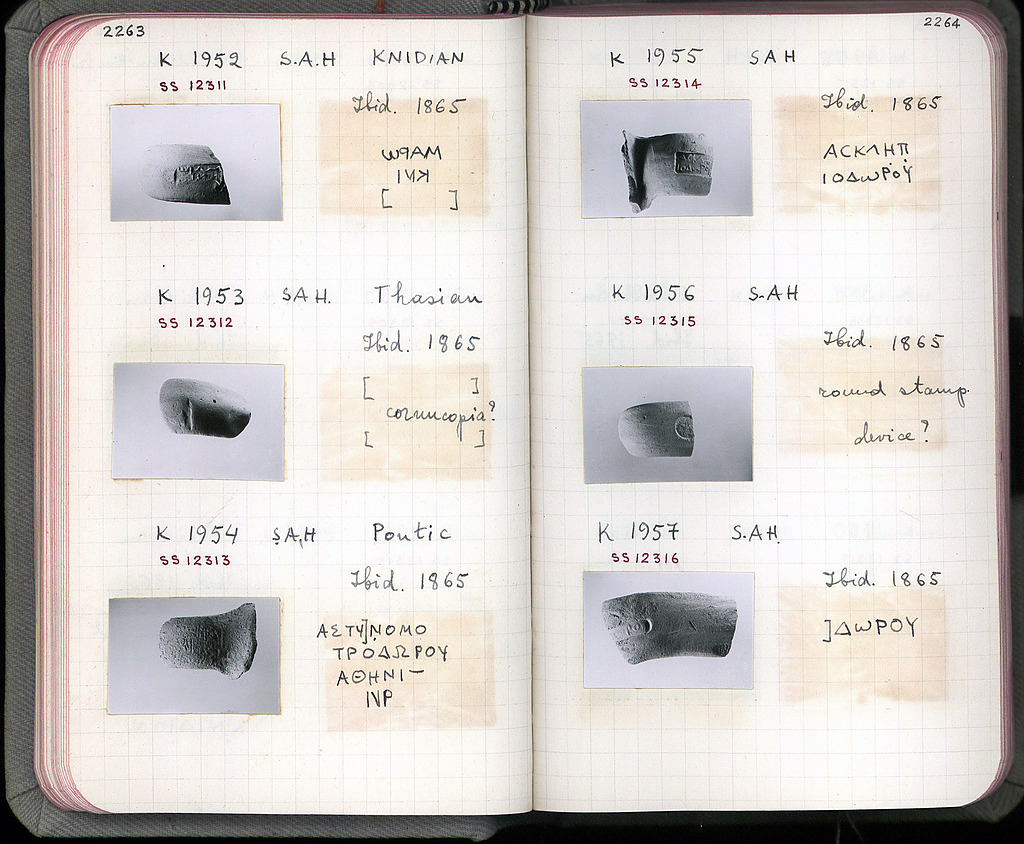 2263
K 1952 S.A.H KNIDIAN
SS 12311
Ibid. 1865
ϢPAM
ИVK
[ ]
K 1953 SAH. Thasian
SS 12312
Ibid. 1865
[ ]
cornucopia?
[ ]
K 1954 S.A.H Pontic
SS 12313
Ibid. 1865
ΑΣΤΥ]ΝΟΜΟ
ΤΡΟΔΩΡΟΥ
ΑΘΗΝΙ
2264
K 1955 SAH
SS 12314
Ibid. 1865
ΑCΚΛΗΠ
ΙΟΔωΡΟΥ
K 1956 S.AH
SS 12315
Ibid. 1865
round stamp.
device?
K 1957 S.A.H.
SS 12316
Ibid. 1865
]ΔωΡΟΥ